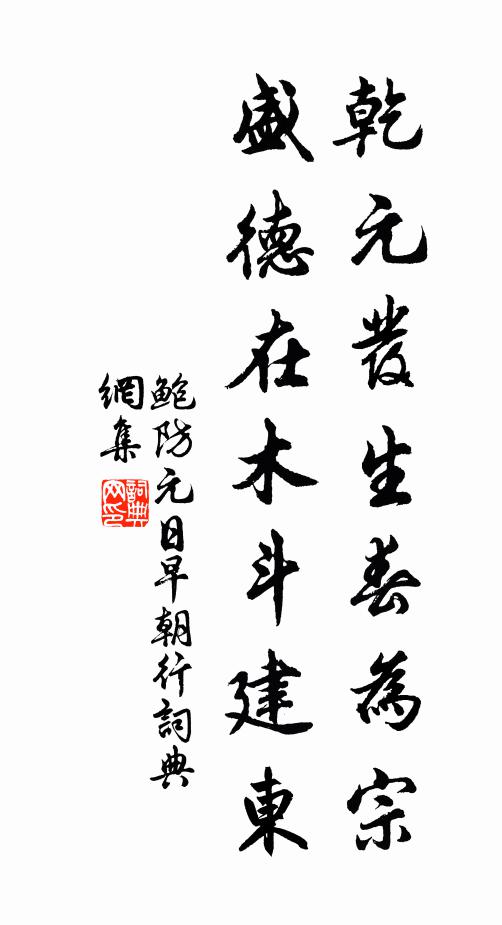 乾元發生春為宗
盛德在木斗建東
鮑防元日早朝行詞典
網集
詞典網印